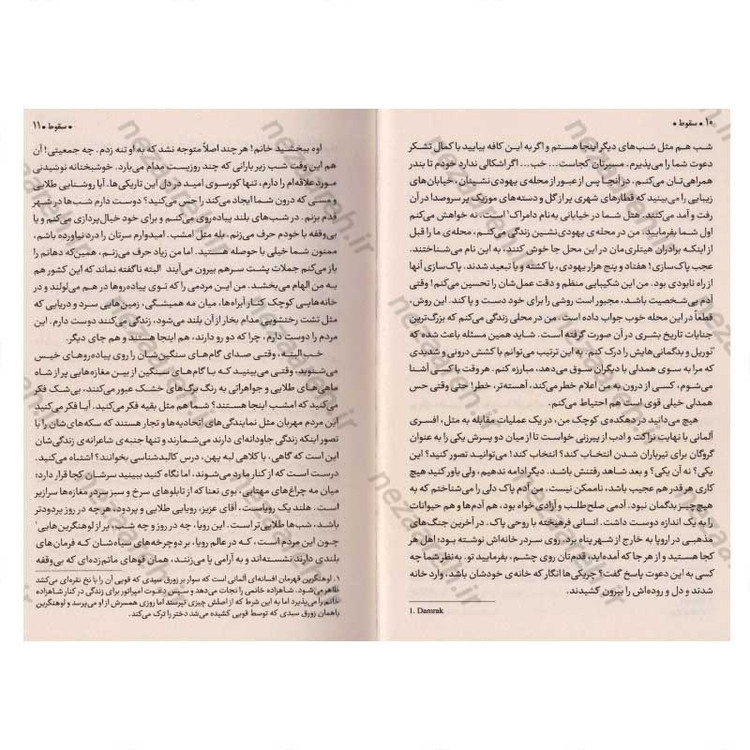 ۱۰ • سقوط •
شب هم مثل شب‌های دیگر اینجا هستم و اگر به این کافه بیایید با کمال تشکر
دعوت شما را می‌پذیرم. مسیرتان کجاست... خب... اگر اشکالی ندارد خودم تا بندر
همراهی‌تان می‌کنم. در آنجا پس از عبور از محله‌ی یهودی‌نشینان، خیابان‌های
زیبایی را می‌بینید که قطارهای شهری پر از گل و دسته‌های موزیک پر سروصدا در آن
رفت و آمد می‌کنند. هتل شما در خیابانی به‌نام دامراک۱ است. نه خواهش می‌کنم
اول شما بفرمایید. من در محله‌ی یهودی نشین زندگی می‌کنم، محله‌ی ما را قبل
از اینکه برادران هیتلری‌مان در این محل جا خوش کنند، به این نام می‌شناختند.
عجب پاک‌سازی! هفتاد و پنج هزار یهودی، یا کشته و یا تبعید شدند. پاک‌سازی آنها
از راه نابودی بود. من این شکیبایی منظم و دقت عمل‌شان را تحسین می‌کنم! وقتی
آدم بی‌شخصیت باشد، مجبور است روشی را برای خود دست و پا کند. این روش،
قطعاً در این محله خوب جواب داده است. من در محلی زندگی می‌کنم که بزرگ‌ترین
جنایات تاریخ بشری در آن صورت گرفته است. شاید همین مسئله باعث شده که
گوریل و بدگمانی‌هایش را درک کنم. به این ترتیب می‌توانم با کشش درونی و شدیدی
که مرا به سوی همدلی با دیگران سوق می‌دهد، مبارزه کنم. هر وقت با یکی آشنا
می‌شوم، کسی از درون به من اعلام خطر می‌کند، آهسته‌تر، خطر! حتی وقتی حس
همدلی خیلی قوی است هم احتیاط می‌کنم.
هیچ می‌دانید در دهکده‌ی کوچک من، در یک عملیات مقابله به مثل، افسری
آلمانی با نهایت نزاکت و ادب از پیرزنی خواست تا از میان دو پسرش یکی را به عنوان
گروگان برای تیرباران شدن انتخاب کند؟ انتخاب کند! می‌توانید تصور کنید؟ این
یکی؟ نه آن یکی؟ و بعد شاهد رفتنش باشد. دیگر ادامه ندهیم، ولی باور کنید هیچ
کاری هر قدر هم عجیب باشد، ناممکن نیست. من آدم پاک دلی را می‌شناختم که به
هیچ‌چیز بدگمان نبود. آدمی صلح‌طلب و آزادی خواه بود، هم آدم‌ها و هم حیوانات
را به یک اندازه دوست داشت. انسانی فرهیخته با روحی پاک. در آخرین جنگ‌های
مذهبی در اروپا به خارج از شهر پناه برد. روی سردر خانه‌اش نوشته بود: اهل هر
کجا هستید و از هر جا که آمده‌اید، قدم‌تان روی چشم، بفرمایید تو. به‌نظر شما چه
کسی به این دعوت پاسخ گفت؟ چریکی‌ها انگار که خانه‌ی خودشان باشد، وارد خانه
شدند و دل و روده‌اش را بیرون کشیدند.
1. Damrak
• سقوط • ۱۱
اوه ببخشید خانم! هر چند اصلاً متوجه نشد که به او تنه زدم. چه جمعیتی! آن
هم این وقت شب زیر بارانی که چند روزیست مدام می‌بارد. خوشبختانه نوشیدنی
مورد علاقه‌ام را دارم، تنها کورسوی امید در دل این تاریکی‌ها. آیا روشنایی طلایی
و مسی که درون شما ایجاد می‌کند را حس می‌کنید؟ دوست دارم شب‌ها در شهر
قدم بزنم. در شب‌های بلند پیاده‌روی می‌کنم و برای خود خیال‌پردازی می‌کنم و یا
بی‌وقفه با خودم حرف می‌زنم، بله مثل امشب. امیدوارم سرتان را درد نیاورده باشم،
ممنون شما خیلی با حوصله هستید. اما من زیاد حرف می‌زنم، همین‌که دهانم را
باز می‌کنم جملات پشت سر هم بیرون می‌آیند. البته ناگفته نماند که این کشور هم
به من الهام می‌بخشد. من این مردمی را که توی پیاده‌روها در هم می‌لولند و در
خانه‌هایی کوچک کنار آبراه‌ها، میان مه همیشگی، زمین‌هایی سرد و دریایی که
مثل تشت رختشویی مدام بخار از آن بلند می‌شود، زندگی می‌کنند دوست دارم. این
مردم را دوست دارم، چرا که دو رو دارند، هم اینجا هستند و هم جای دیگر.
خب البته، وقتی صدای گام‌های سنگین‌شان را روی پیاده‌روهای خیس
می‌شنوید، وقتی می‌بینید که با گام‌های سنگین از بین مغازه‌هایی پر از شاه
ماهی‌های طلایی و جواهراتی به رنگ برگ‌های خشک عبور می‌کنند، بی‌شک فکر
می‌کنید که امشب اینجا هستند؟ شما هم مثل بقیه فکر می‌کنید. آیا فکر می‌کنید
این مردم مهربان مثل نمایندگی های اتحادیه‌ها و تجار هستند که سکه‌های شان را با
تصور اینکه زندگی جاودانه‌ای دارند می‌شمارند و تنها جنبه‌ی شاعرانه‌ی زندگی‌شان
این است که گاهی، با کلاهی لبه پهن، درس کالبدشناسی بخوانند؟ اشتباه می‌کنید.
درست است که از کنار ما رد می‌شوند، اما نگاه کنید ببینید سرشان کجا قرار دارد؛
میان مه چراغ‌های مهتابی، بوی نعنا که از تابلوهای سرخ و سبز سردر مغازه‌ها سرازیر
است. هلند یک رویاست، آقای عزیز، رویایی طلایی و پردود، هر چه در روز پردودتر
باشد، شب‌ها طلایی‌تر است. این رویا، چه در روز و چه شب، پر از لوهنگرین‌هایی۱
چون این مردم است، که در عالم رویا، بر دوچرخه‌های سیاه‌شان که فرمان‌های
بلندی دارند نشسته‌اند و به آرامی پا می‌زنند، همان قوهای ماتم‌زده‌ای که بی‌وقفه
۱. لوهنگرین قهرمان افسانه‌ای آلمانی است که سوار بر زورق سیدی که قویی آن را با نخ نقره‌ای می‌کشد
ظاهر می‌شود. شاهزاده خانمی را نجات می‌دهد و سپس دعوت امپراتور برای زندگی در کنار شاهزاده
خانم را می‌پذیرد اما به این شرط که از اصلش چیزی نپرسند اما روزی همسرش از او می‌پرسد و لوهنگرین
با همان زورق سبدی که توسط قویی کشیده می‌شد دختر را ترک می‌کند.
nezaameh.ir